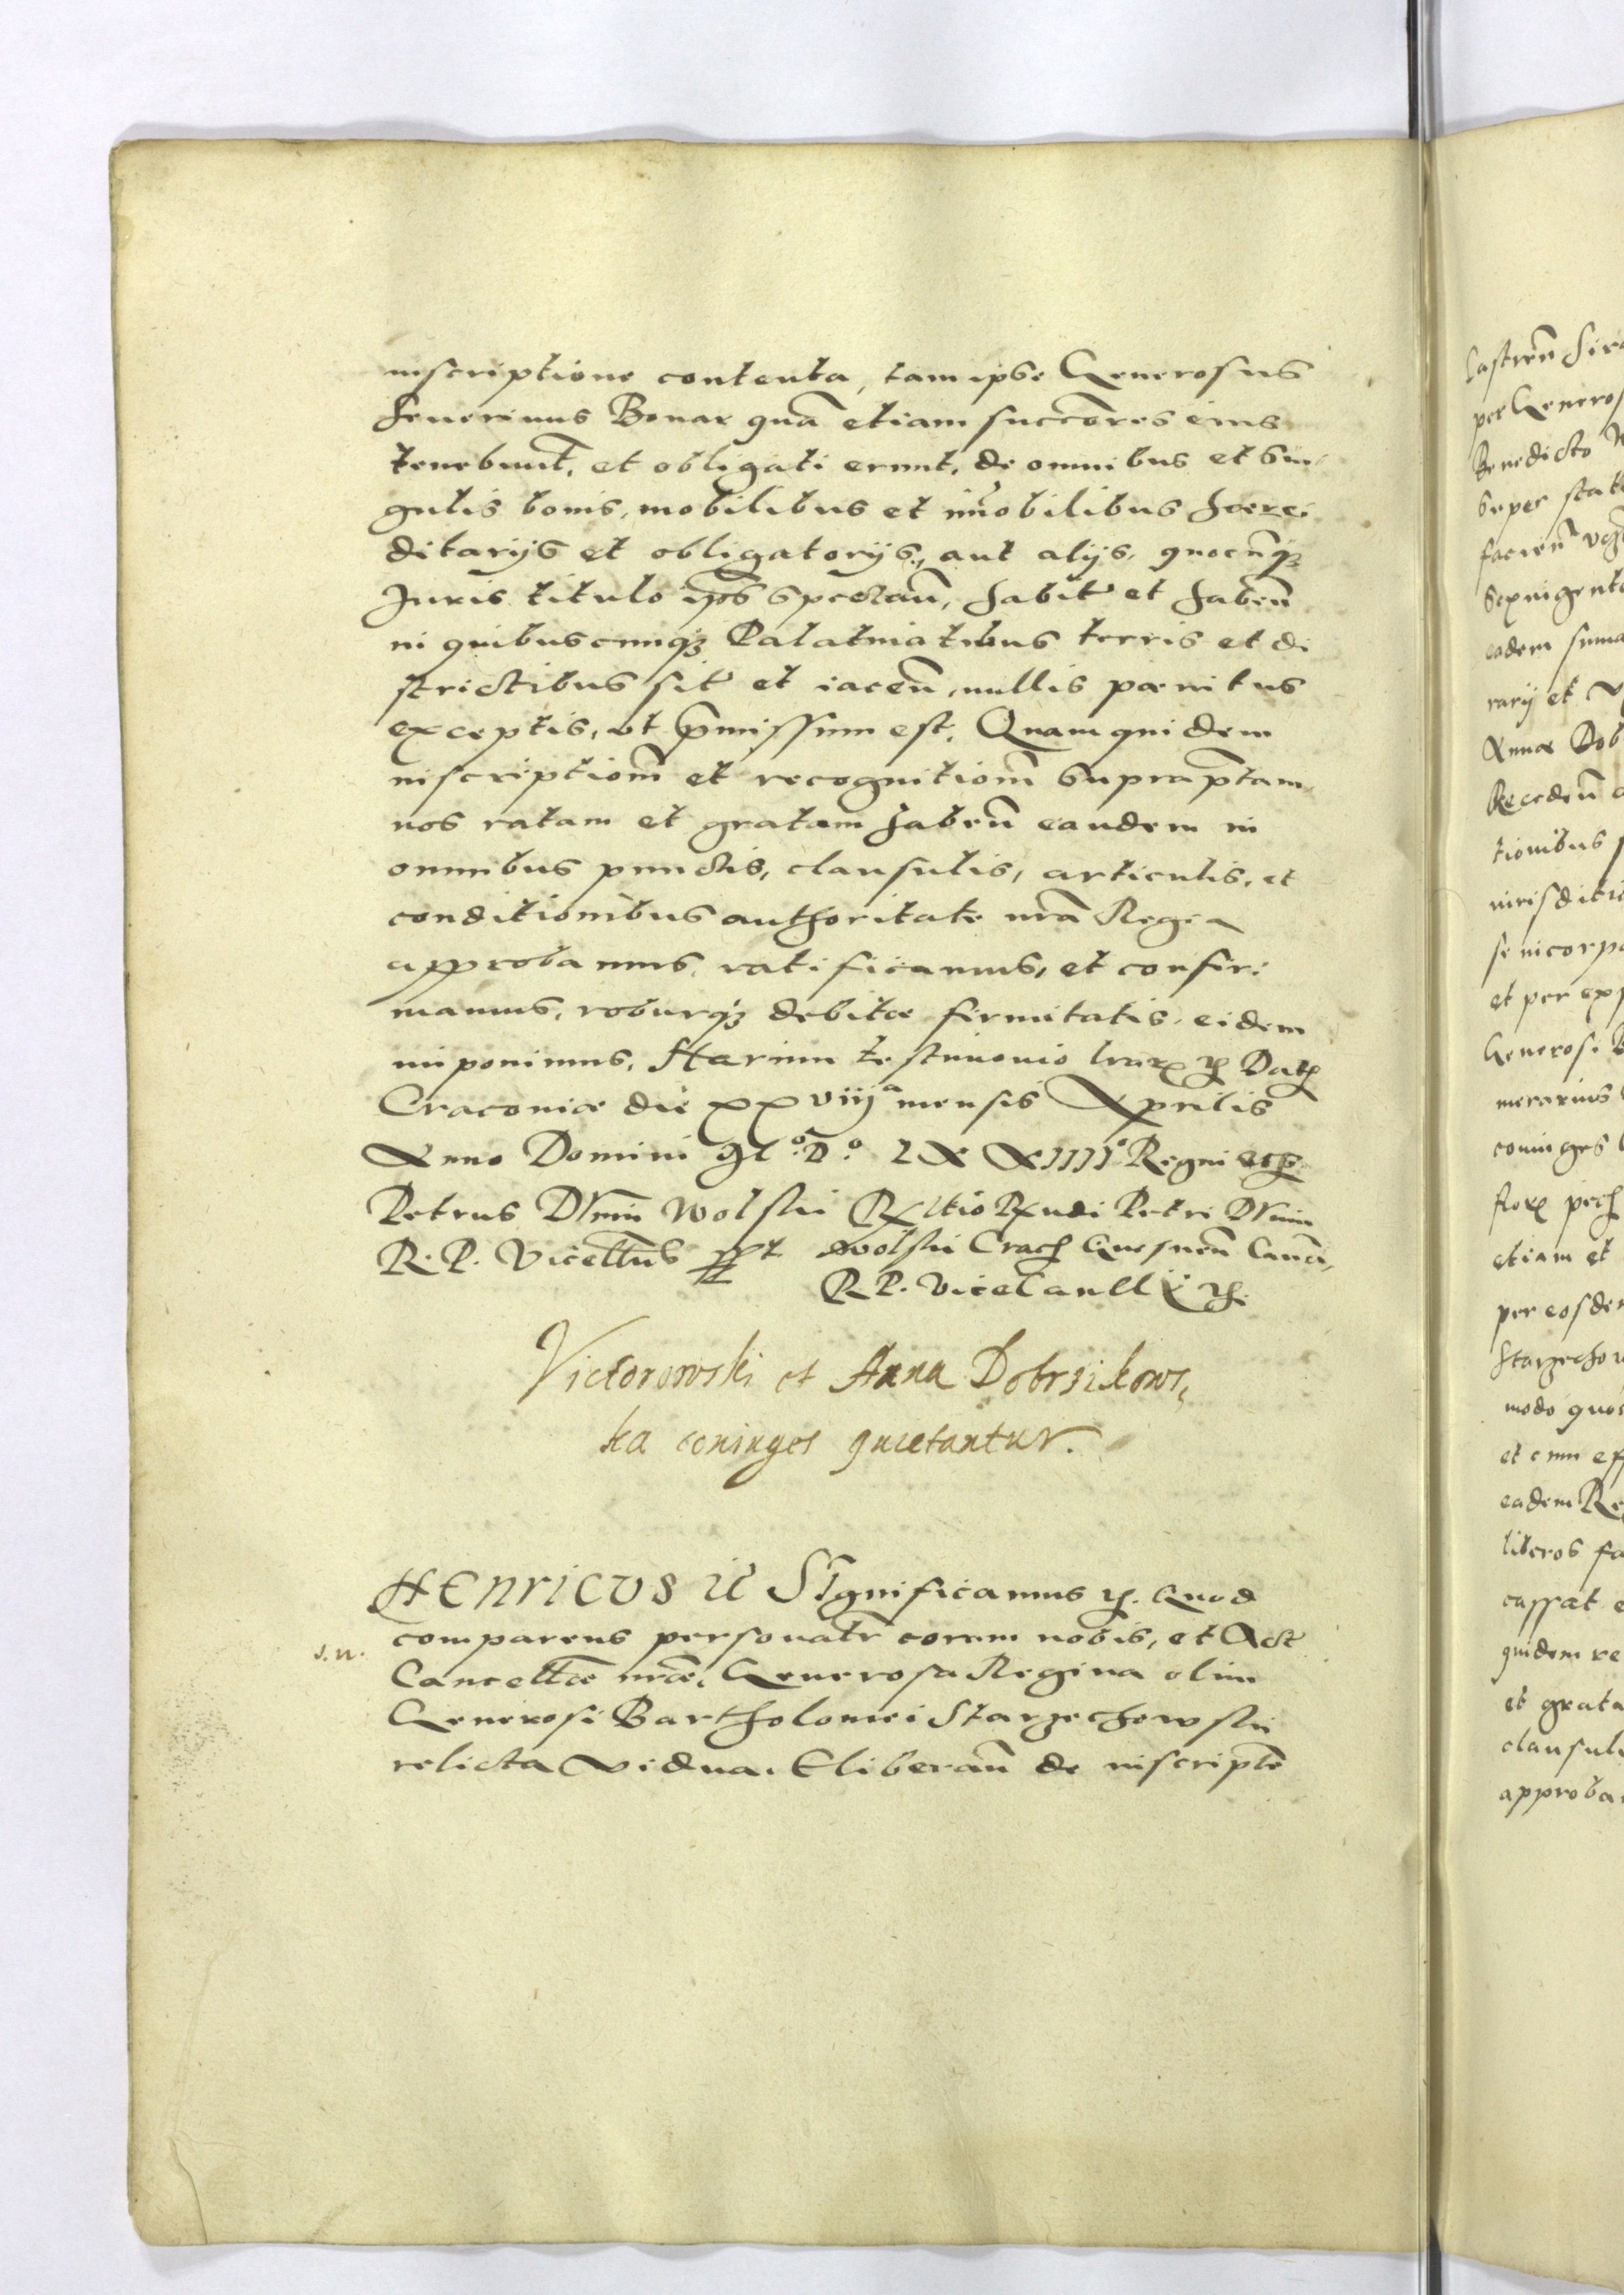 inscriptione contenta, tam ipse Generosus
Seuerinus Bonar quā etiam succōres eius
tenebunt̄, et obligati erunt, de omnibus et sin
gulis bonis, mobilibus et im̄obilibus haerei
ditarijs et obligatorijs, aut alijs, quocūq3
Juris titulo ip̄os spectan̄, habit̄ et haben̄
in quibuscunq3 Palatinatibus terris et di
strictibus sit̄ et iacen̄, nullis paenitus
exceptis, ut p̄missum est. Quam quidem
inscription̄m et recognition̄m suprap̄tam
nos ratam et gratam haben̄ eandem in
omnibus punctis, clausulis, articulis, et
conditionibus authoritate n̄ra Regea
approbamus, ratificamus, et confir
mamus, roburq3 debitae firmitatis eidem
imponimus. Harum testimonio l̄rarꝝ ꝛc Datꝭ
Cracouiae die xxviijᵃ mensis Aprilis
Anno Domini Mº.Dº. LXXIIIIº Regni
Petrus Wolski R. Petri
R. P. Vicecell̄us sp̄t Wolski Crac Gnesnen̄ Canō,
R P. Vicecancell ꝛc.
Victorowski et Anna Dobrzikows,
ka coniuges quietantur.
HEnricvs ꝛc SIgnificamus ꝛc. Quod
comparens personalr̄ coram nobis, et Act̄
s. n.
Cancell̄ae n̄rae, Generosa Regina olim
Generosi Bartholomei Starzechowski
relicta Vidua. Eliberan̄ de inscript̄e
Castren̄
per Generos
Benedicto
super stat
facien̄
eadem suma
rarij et
Annae Dob
Receden̄
tionibus
iurisditi
se incorpo
et per exp
Generosi B
merarius
coniuges
etiam et
per eosdem
Starzechow
modo quo
et cum eff
eadem Re
liberos fa
cassat e
quidem re
et grata
clausul
approba